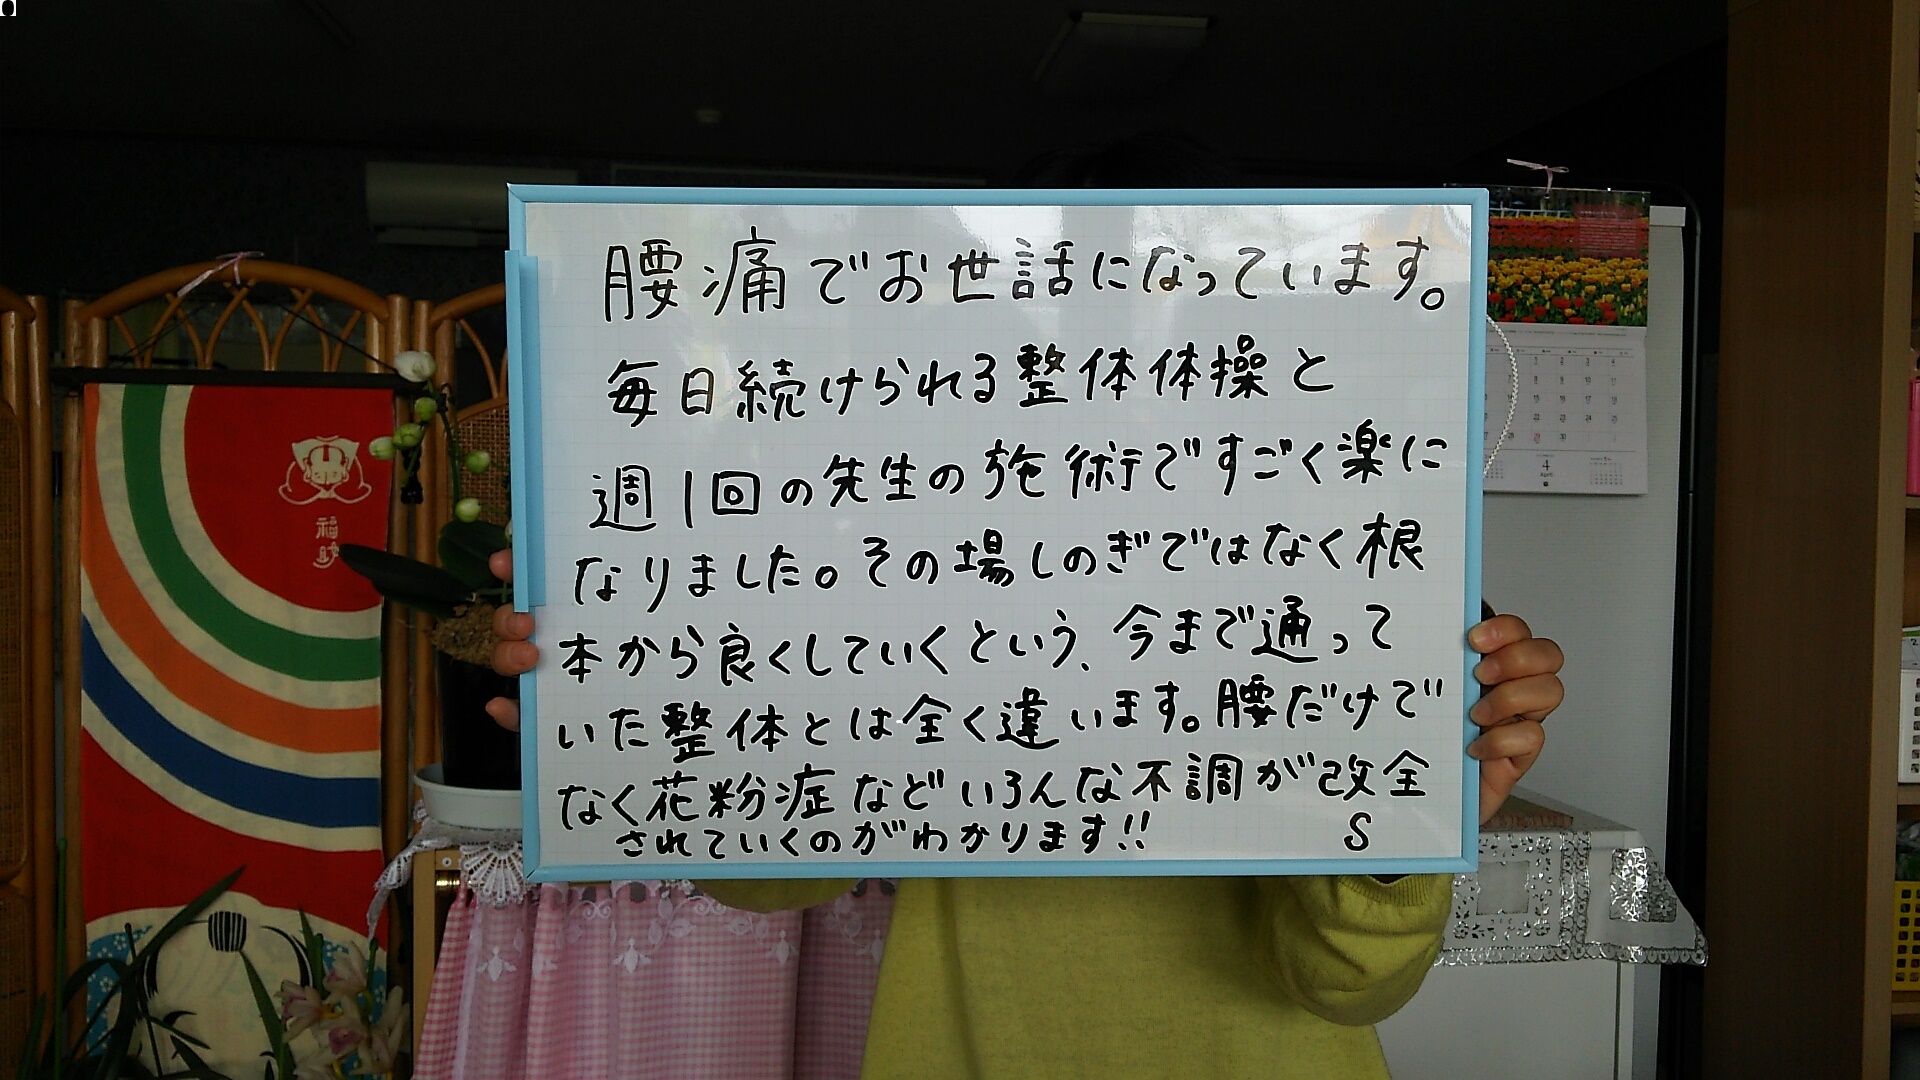 腰痛でお世話になっています。
毎日続けられる整体体操と
週1回の先生の施術ですごく楽に
なりました。その場しのぎではなく根
本から良くしていくという、今まで通って
いた整体とは全く違います。腰だけで
なく花粉症などいろんな不調が改全
されていくのがわかります!!
S
福助
4